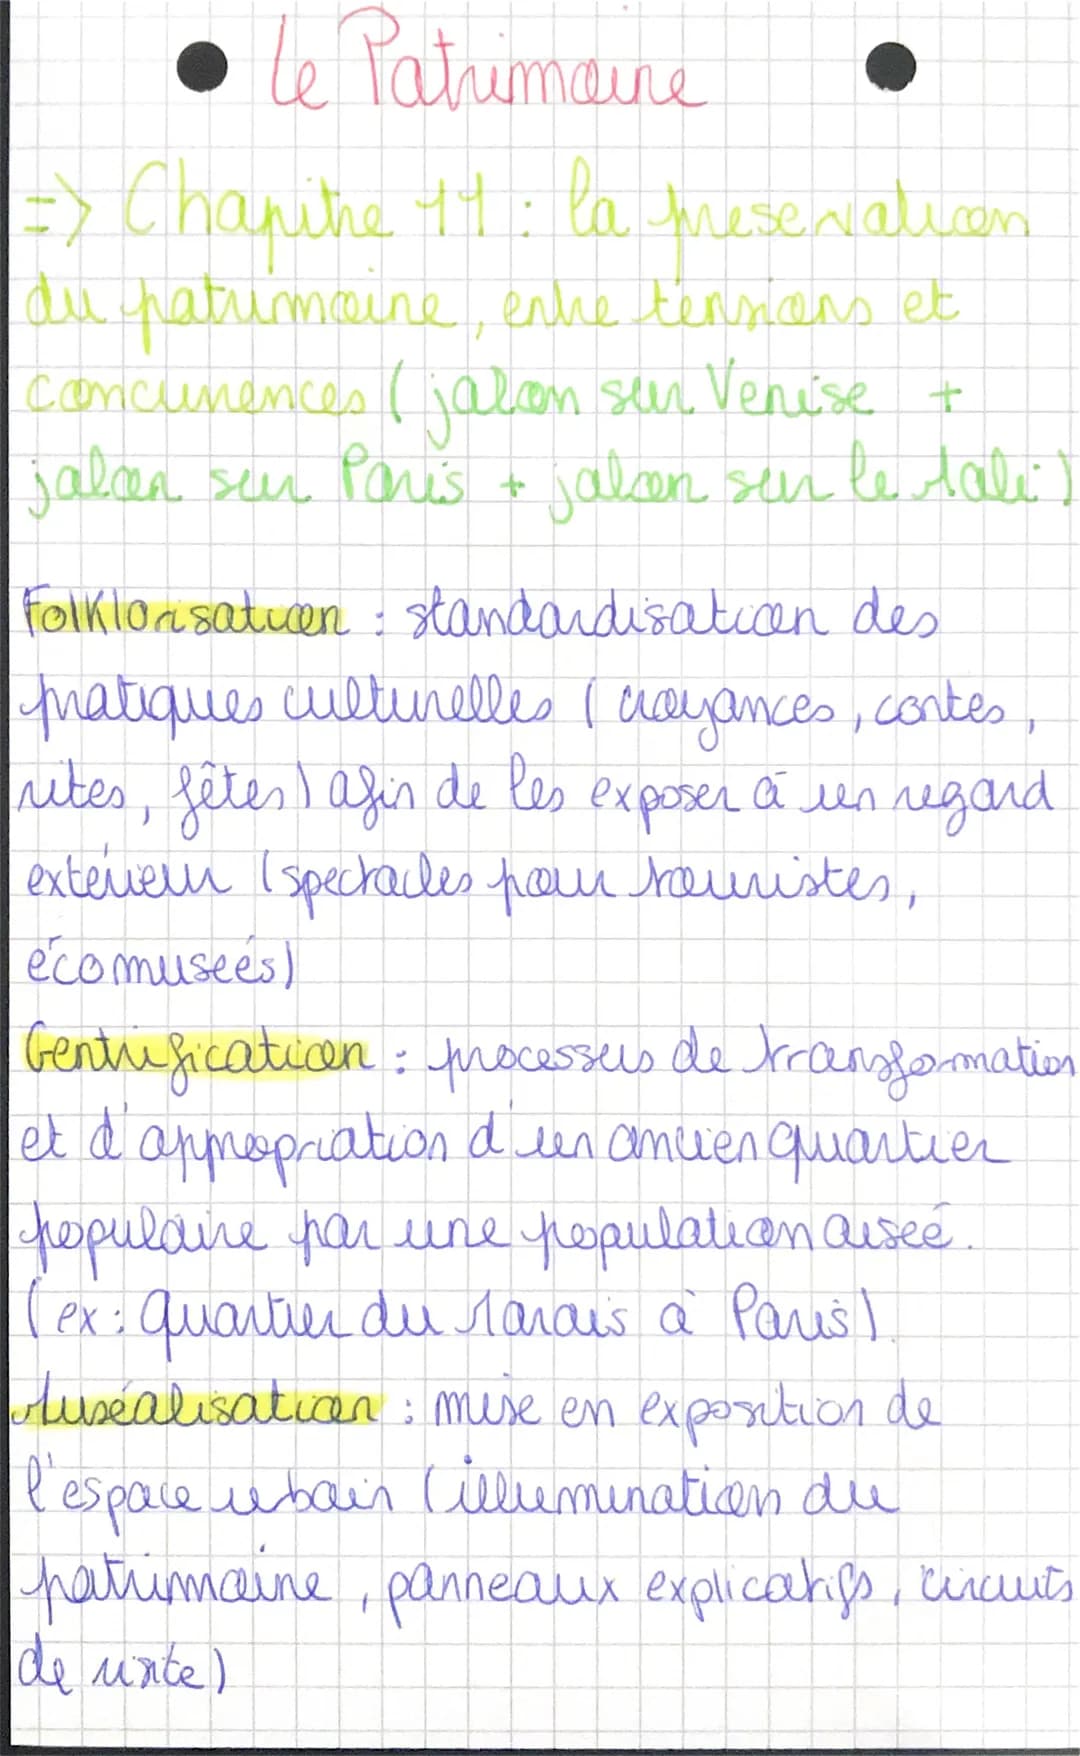 Le Patrimoine
=> Chapitre 11 : la preservation
du patrimoine, entre tensions et
concurrences (jalon sur Venise +
jalon sur Paris + jalon sur le Mali)
Folklorisation : standardisation des
pratiques culturelles (croyances, contes,
rites, fêtes) afin de les exposer à un regard
extérieur (spectacles pour touristes,
écomuseés)
Gentrification : processus de transformation
et d'appropriation d'un ancien quartier
populaire par une population aiseé.
(ex : quartier du Marais à Paris).
Muséalisation : mise en exposition de
l'espace urbain (illumination du
patrimoine, panneaux explicatifs, circuits
de visite)